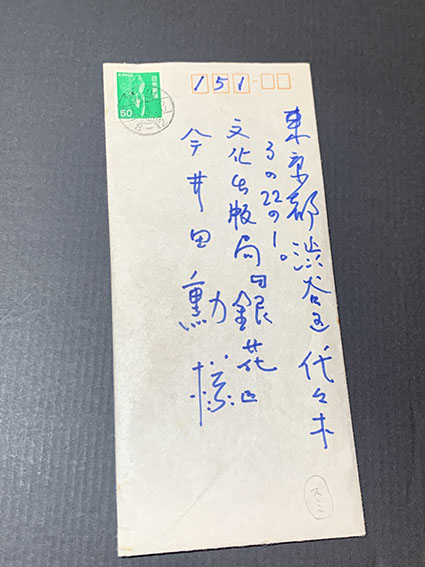 151
東京都渋谷区代々木
3の22の1。
文化出版局「銀花」
今井田勲様
50
日本郵便
8-12
スミ